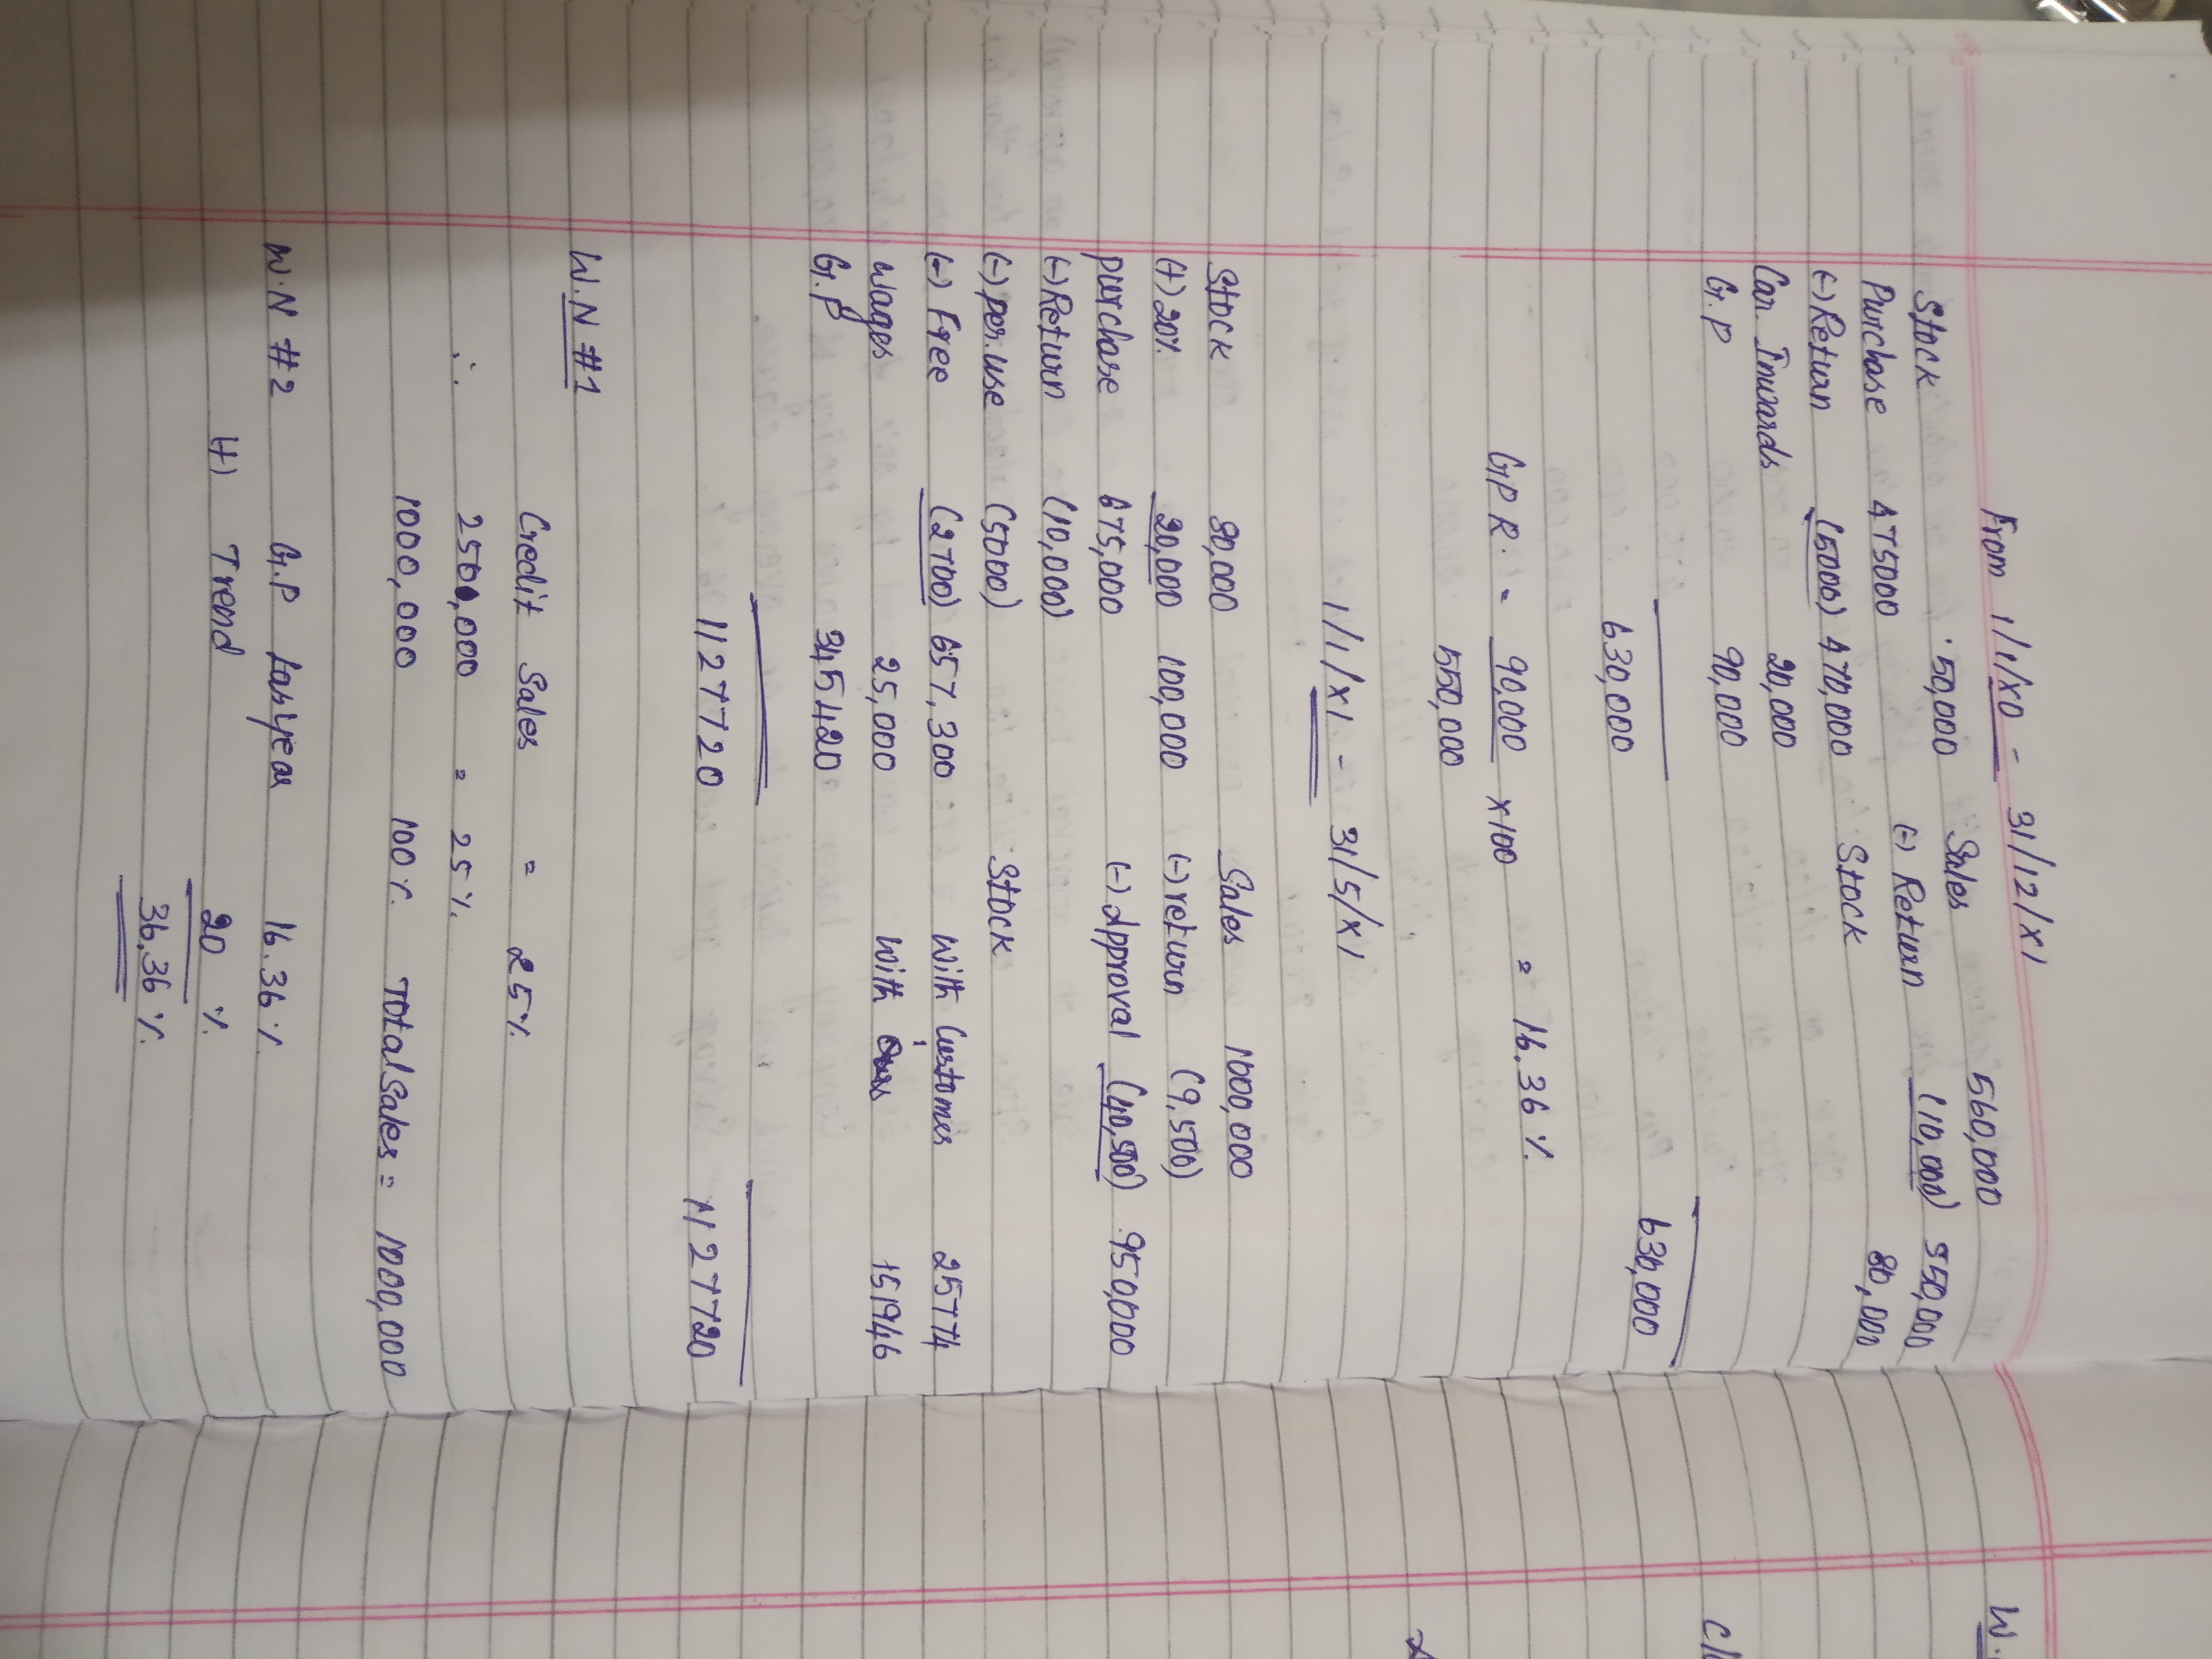 From 1/1/X0 - 31/12/X1
Stock 50,000 Sales 560,000
Purchase 475000 (-) Return (10,000) 550,000
(-) Return (5000) 470,000 Stock 80,000
Carr. Inwards 20,000
G.P 90,000
630,000 630,000
GPR = 90,000 x100 = 16.36 %
550,000
1/1/X1 - 31/5/X1
Stock 80,000 Sales 1000,000
(+) 20% 20,000 100,000 (-) return (9,500)
purchase 675,000 (-) Approval (40,500) 950,000
(-) Return (10,000)
(-) per.use (5000) Stock
(-) Free (2700) 657,300 With Customers 25774
Wages 25,000 With 151946
G.P 345420
1127720 1127720
W.N #1
Credit Sales = 25%
∴ 250,000 = 25%
1000,000 100% Total Sales = 1000,000
W.N #2 G.P last year 16.36 %
+) Trend 20 %
36.36 %
W.